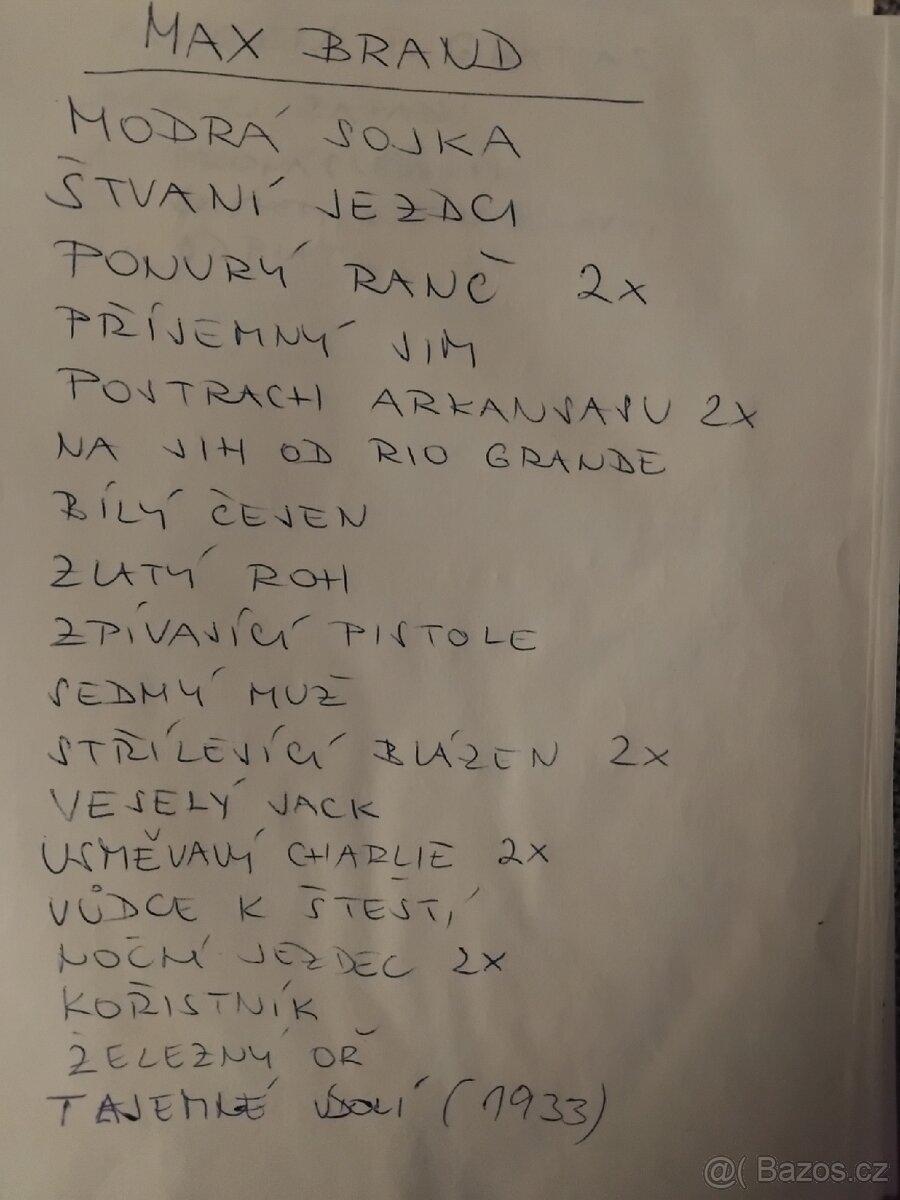 MAX BRAND
MODRÁ SOJKA
ŠTVANÍ JEZDCI
PONURÝ RANČ 2x
PŘÍJEMNÝ JIM
POSTRACH ARKANSASU 2x
NA JIH OD RIO GRANDE
BÍLÝ ČEJEN
ZLATÝ ROH
ZPÍVAJÍCÍ PISTOLE
SEDMÝ MUŽ
STŘÍLEJÍCÍ BLÁZEN 2x
VESELÝ JACK
USMĚVAVÝ CHARLIE 2x
VŮDCE K ŠTESTÍ
NOČNÍ JEZDEC 2x
KOŘISTNÍK
ŽELEZNÝ OŘ
TAJEMNÉ ÚDOLÍ (1933)
@( Bazos.cz